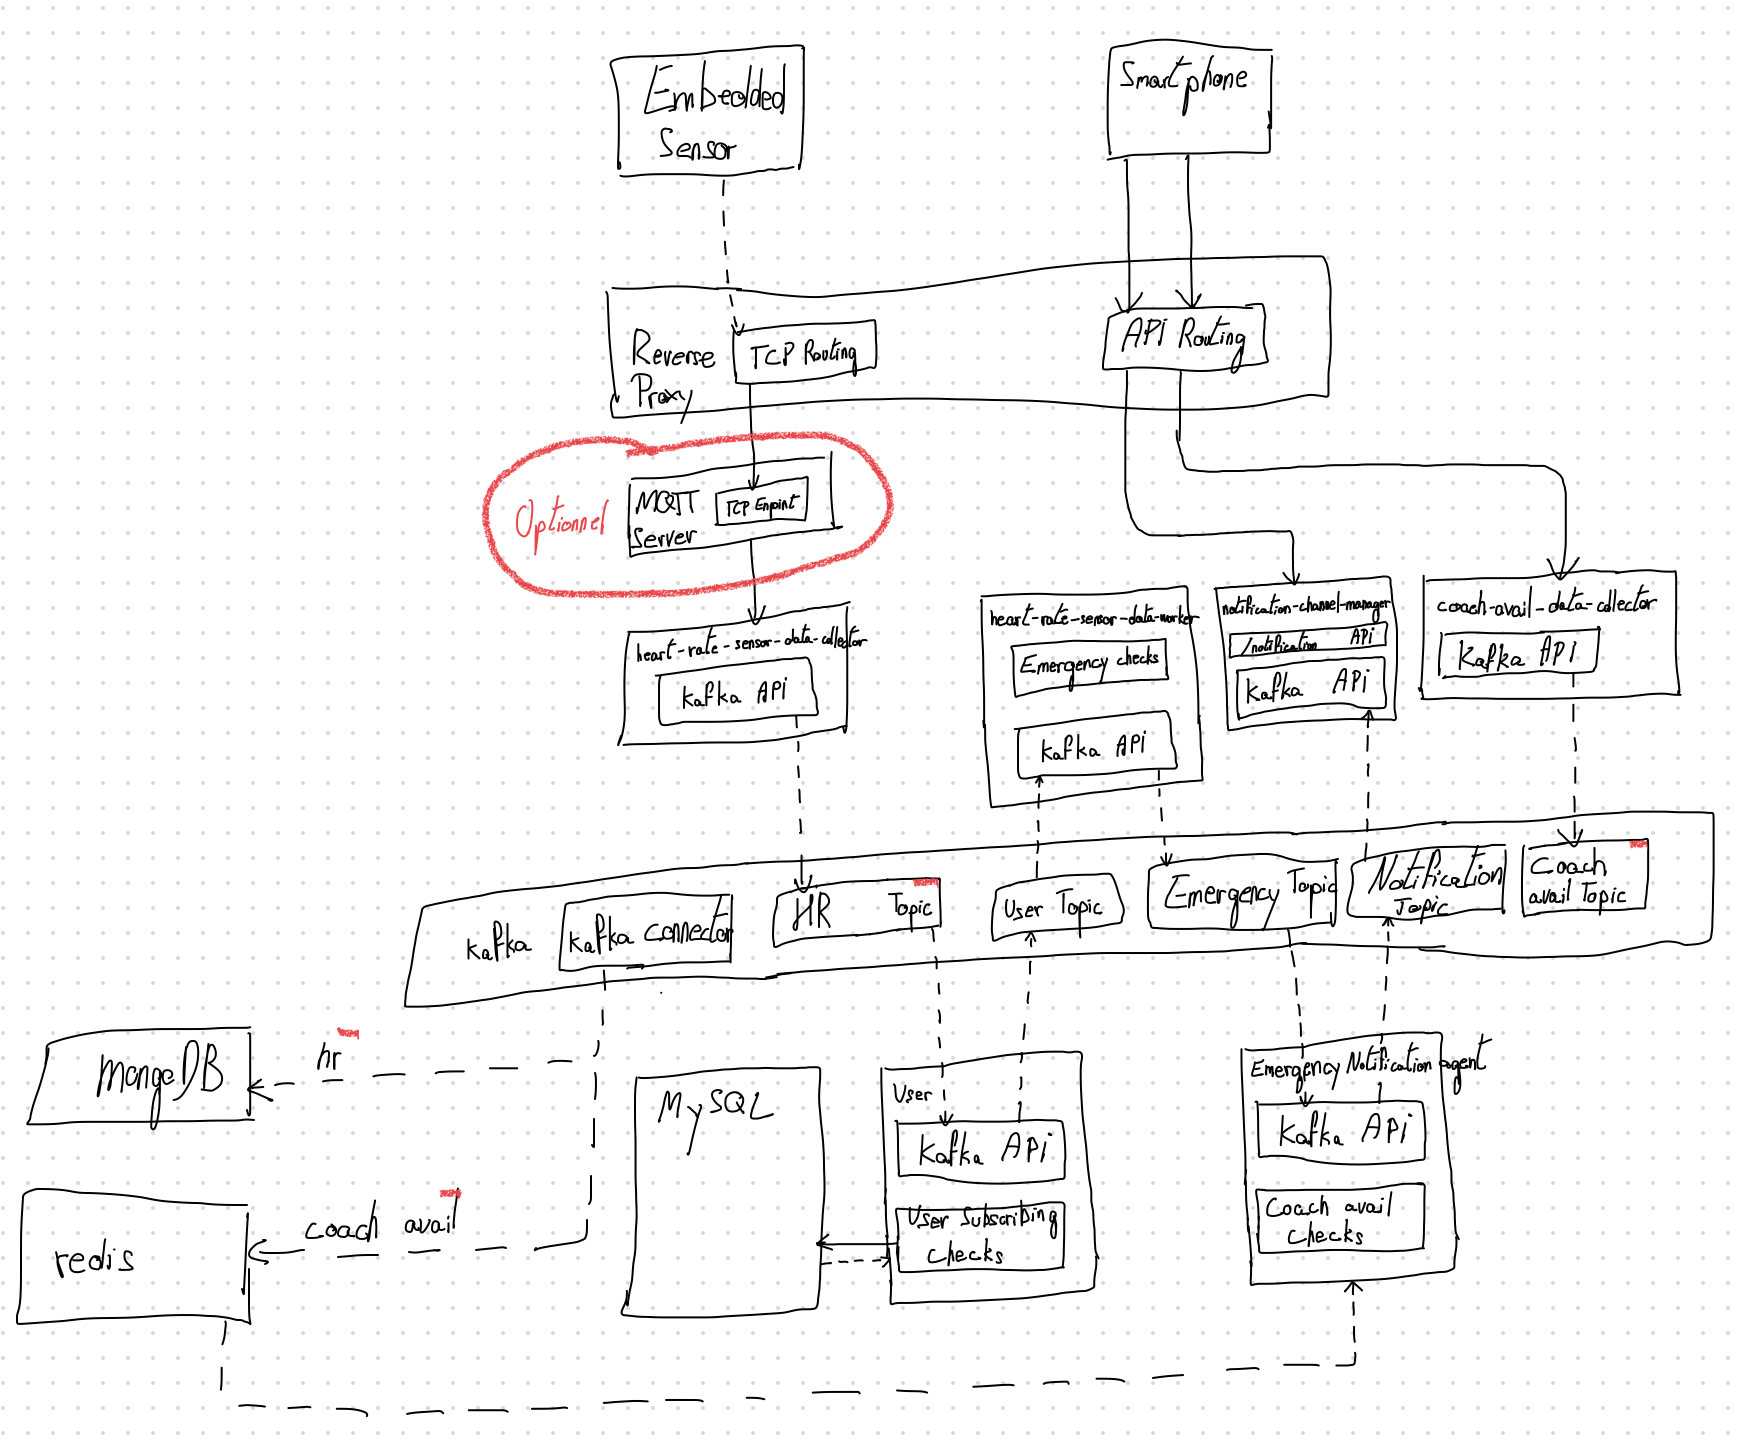 Embedded
Sensor
Smartphone
Reverse
Proxy
TCP Routing
API Routing
Optionnel
MQTT
Server
TCP Enpoint
heart-rate-sensor-data-collector
Kafka API
heart-rate-sensor-data-worker
Emergency checks
Kafka API
notification-channel-manager
/notification API
Kafka API
coach-avail-data-collector
Kafka API
Kafka
Kafka connector
HR Topic
User Topic
Emergency Topic
Notification
Topic
Coach
avail Topic
MongoDB
hr
redis
coach avail
MySQL
User
Kafka API
User Subscribing
checks
Emergency Notification agent
Kafka API
Coach avail
checks